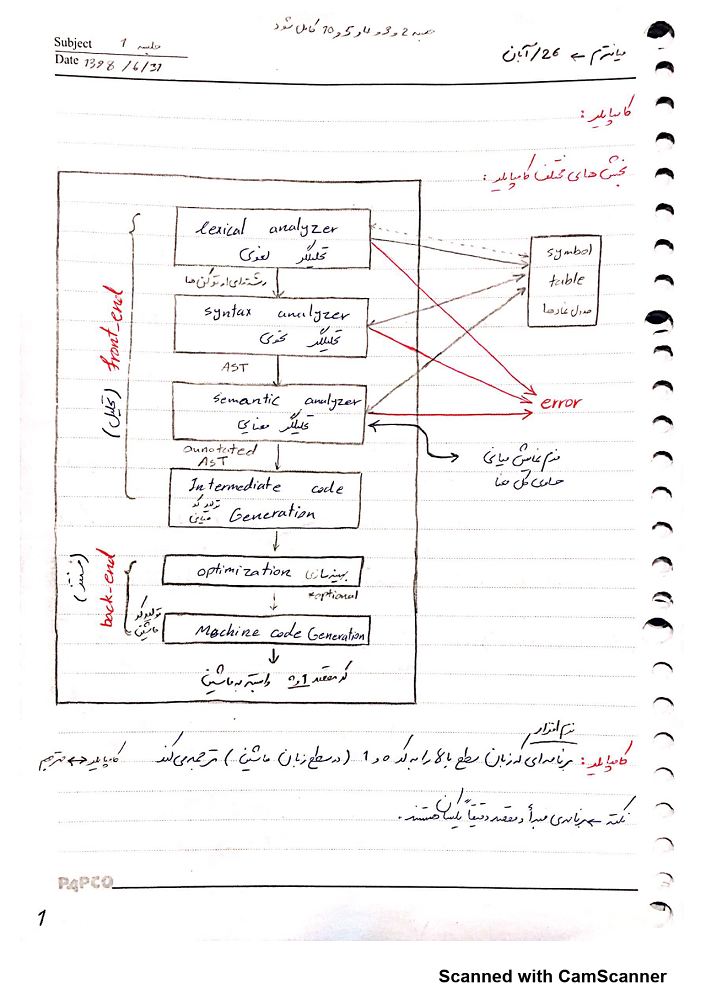 جلسه 2 و 3 و 10 کامل شود
Subject جلسه 1
Date 1398/6/31
میانترم ← 26/آبان
کامپایلر:
بخش های مختلف کامپایلر:
lexical analyzer
تحلیلگر لغوی
رشته ای از توکن ها
syntax analyzer
تحلیلگر نحوی
AST
semantic analyzer
تحلیلگر معنایی
annotated
AST
Intermediate code
Generation
تولید کد
میانی
optimization بهینه سازی
*optional
Machine code Generation
تولید کد
ماشین
کد مقصد 0 و 1 وابسته به ماشین
front_end
(تحلیل)
back-end
symbol
table
جدول نمادها
error
فرم نمایش میانی
نرم افزار
کامپایلر: برنامه ای که زبان سطح بالا را به کد 0 و 1 (در سطح زبان ماشین) ترجمه می کند
کامپایلر ↔ مترجم
نکته ← برنامه ی مبدأ و مقصد دقیقاً یکسان هستند.
PAPCO
1
Scanned with CamScanner